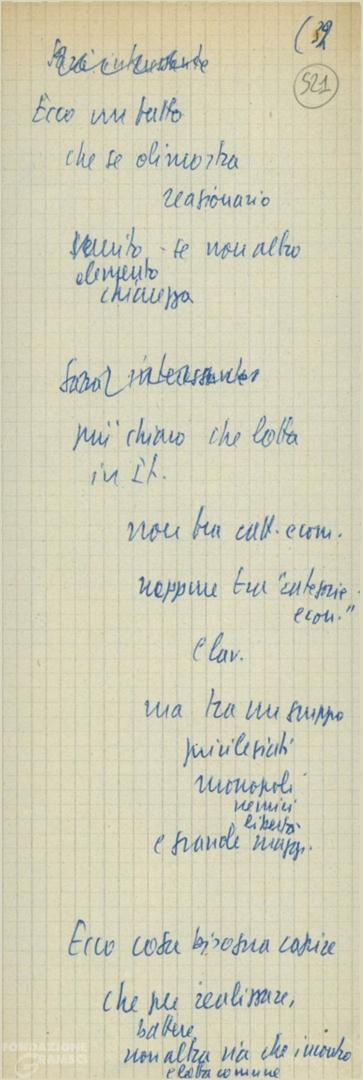 (32
521
Sarà interessante
Ecco un fatto
che se dimostra
reazionario
servito - se non altro
elemento
chiarezza
Sarà interessante
più chiaro che lotta
in It.
non tra catt. e com.
neppure tra "categorie
econ."
e lav.
ma tra un gruppo
privilegiati
monopoli
nemici
libertà
e grande magg.
Ecco cosa bisogna capire
che per realizzare,
battere
non altra via che incontro
e lotta comune
FONDAZIONE
GRAMSCI